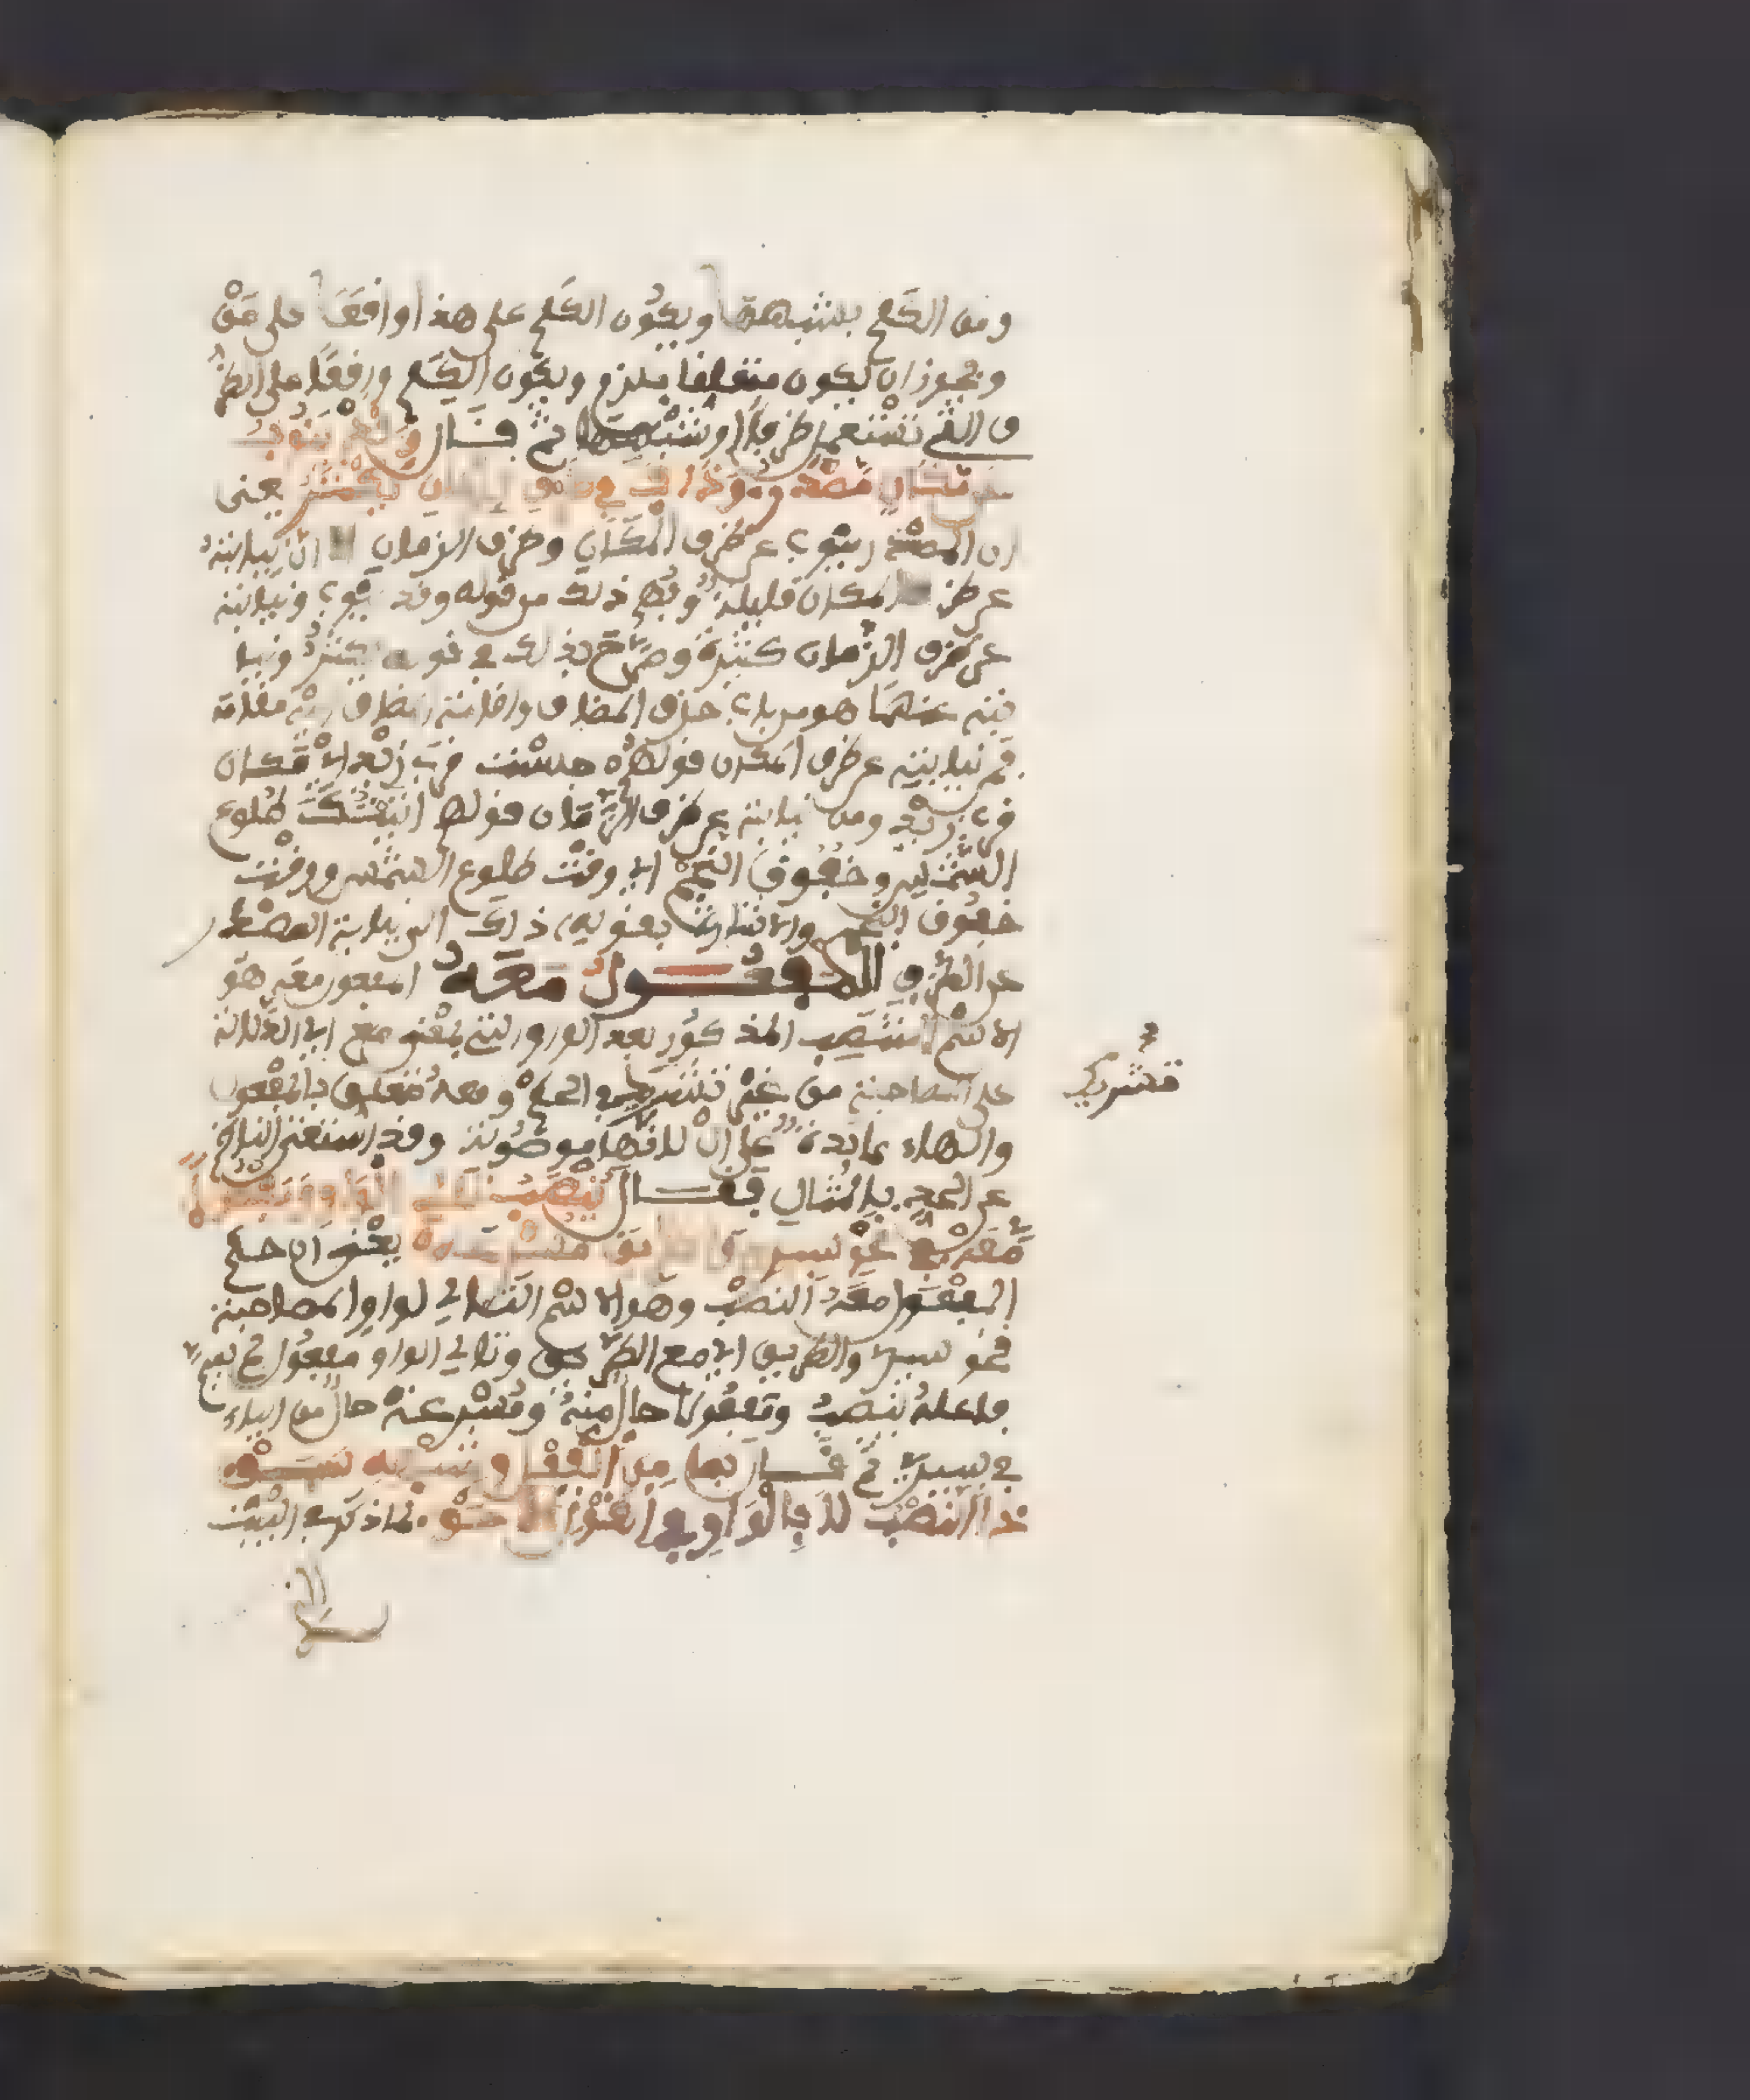 ومن الكلم بشبهه ويكون الكلم على هذا واقعا على من
ويجوز ان يكون متعلقا بلزم ويكون الكلم واقعا على الظر
ف التي تستعمل ظرفا او شبهه ثم قال وقد ينوب
عن مكان مصدر وذاك في ظرف الزمان يكثر يعني
ان المصدر ينوب عن ظرف المكان وظرف الزمان الا ان نيابته
عن ظرف المكان قليلة وفهم ذلك من قوله وقد ينوب ونيابته
عن ظرف الزمان كثيرة وصرح بذلك في قوله يكثر ونيا
بته عنهما هو من باب حذف المضاف واقامة المضاف اليه مقامه
فمن نيابته عن ظرف المكان قولهم جلست قرب زيد اي مكان
قرب زيد ومن نيابته عن ظرف الزمان قولهم اتيتك طلوع
الشمس وخفوق النجم اي وقت طلوع الشمس ووقت
خفوق النجم والاشارة بقوله ذاك الى نيابة المصدر
عن الظرف المفعول معه المفعول معه هو
الاسم المنتصب المذكور بعد الواو التي بمعنى مع اي الدالة
على المصاحبة من غير تشريك في الحكم ومعه متعلق بالمفعول
تشريك
والهاء عائدة على ال لانها موصولة وقد استغنى الناظم
عن الحد بالمثال فقال ينصب تالي الواو مفعولا
معه في نحو سيري والطريق مسرعه يعني ان حكم
المفعول معه النصب وهو الاسم التالي لواو المصاحبة
نحو سيري والطريق اي مع الطريق وتالي الواو مفعول لم يسم
فاعله بينصب ومفعولا حال منه ومسرعة حال من الياء
في سيري ثم قال بما من الفعل وشبهه سبق
ذا النصب لا بالواو في القول الاحق لما ذكر في البيت